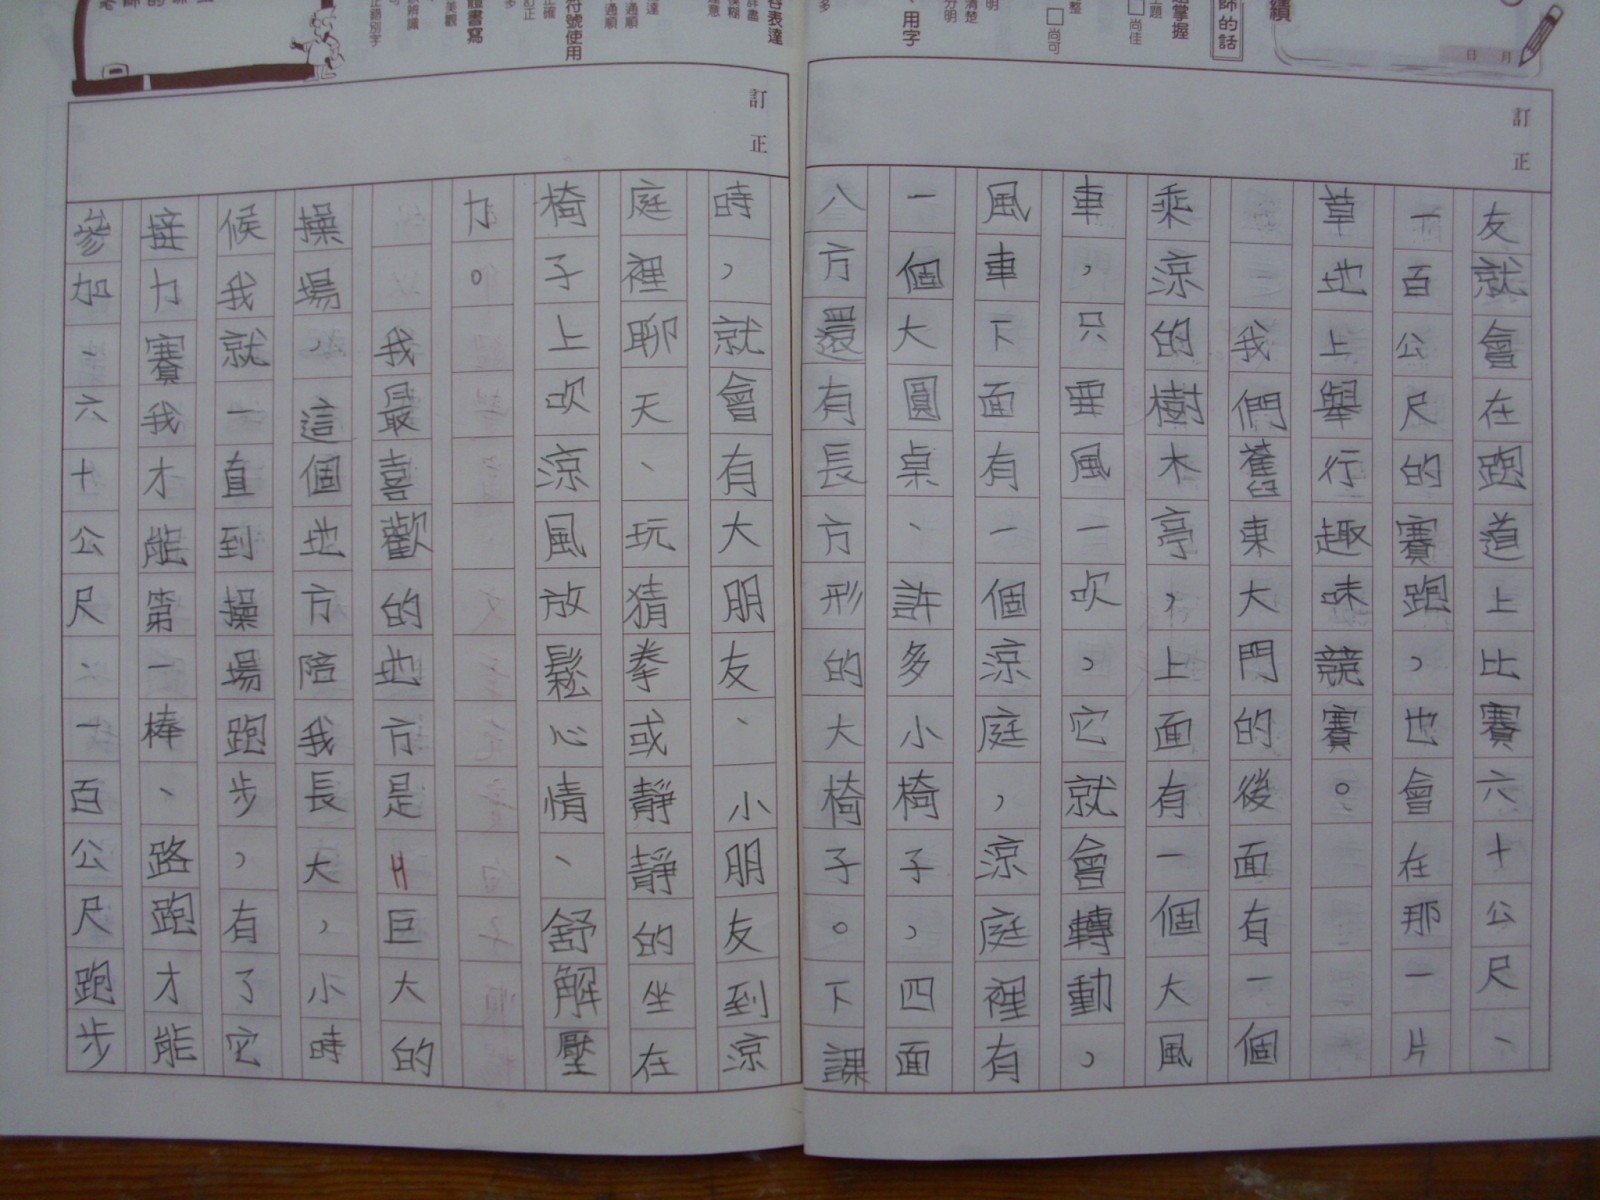 師的話
日 月
用字
符號使用
訂正
訂正
友就會在跑道上比賽六十公尺、
一百公尺的賽跑，也會在那一片
草地上舉行趣味競賽。
我們舊東大門的後面有一個
乘涼的樹木亭，上面有一個大風
車，只要風一吹，它就會轉動，
風車下面有一個涼庭，涼庭裡有
一個大圓桌、許多小椅子，四面
八方還有長方形的大椅子。下課
時，就會有大朋友、小朋友到涼
庭裡聊天、玩猜拳或靜靜的坐在
椅子上吹涼風放鬆心情、舒解壓
力。
我最喜歡的地方是巨大的
操場，這個地方陪我長大，小時
候我就一直到操場跑步，有了它
接力賽我才能第一棒、路跑才能
參加、六十公尺、一百公尺跑步